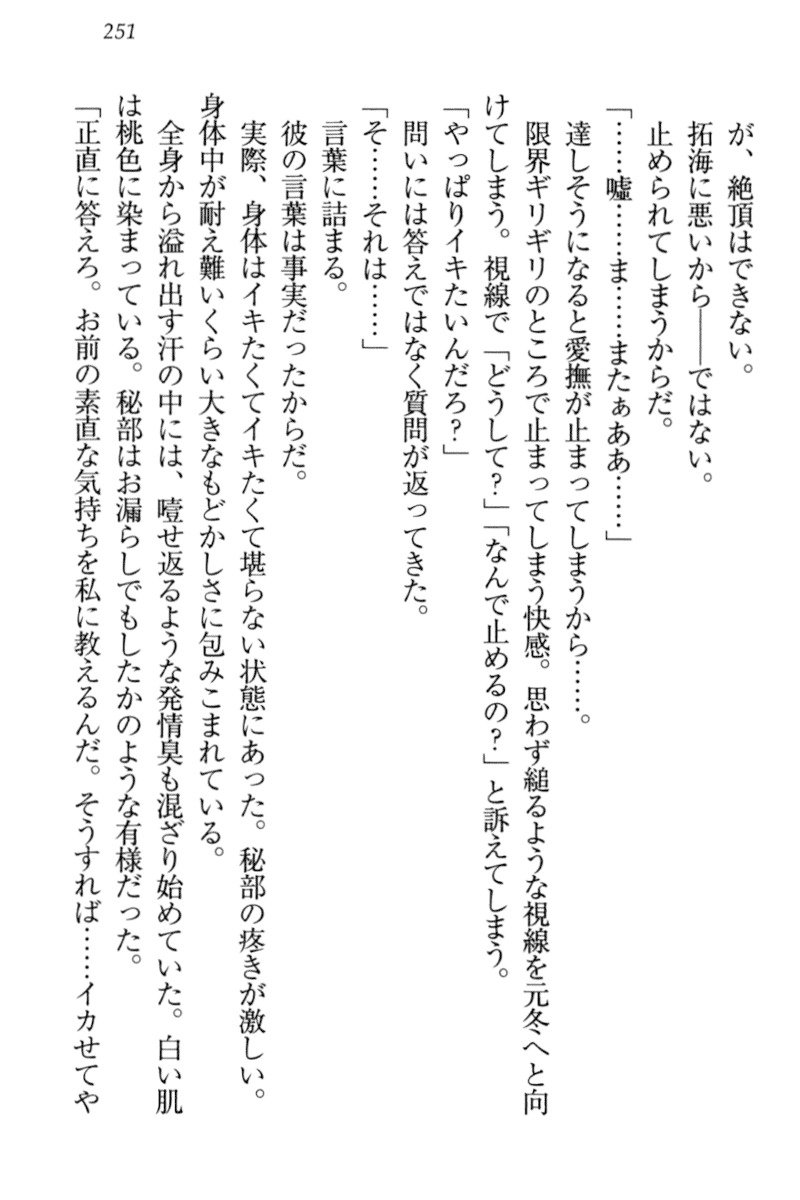 251
が、絶頂はできない。
拓海に悪いから――ではない。
止められてしまうからだ。
「……嘘……ま……またぁああ……」
達しそうになると愛撫が止まってしまうから……。
限界ギリギリのところで止まってしまう快感。思わず縋るような視線を元冬へと向
けてしまう。視線で「どうして?」「なんで止めるの?」と訴えてしまう。
「やっぱりイキたいんだろ?」
問いには答えではなく質問が返ってきた。
「そ……それは……」
言葉に詰まる。
彼の言葉は事実だったからだ。
実際、身体はイキたくてイキたくて堪らない状態にあった。秘部の疼きが激しい。
身体中が耐え難いくらい大きなもどかしさに包みこまれている。
全身から溢れ出す汗の中には、噎せ返るような発情臭も混ざり始めていた。白い肌
は桃色に染まっている。秘部はお漏らしでもしたかのような有様だった。
「正直に答えろ。お前の素直な気持ちを私に教えるんだ。そうすれば……イカせてや